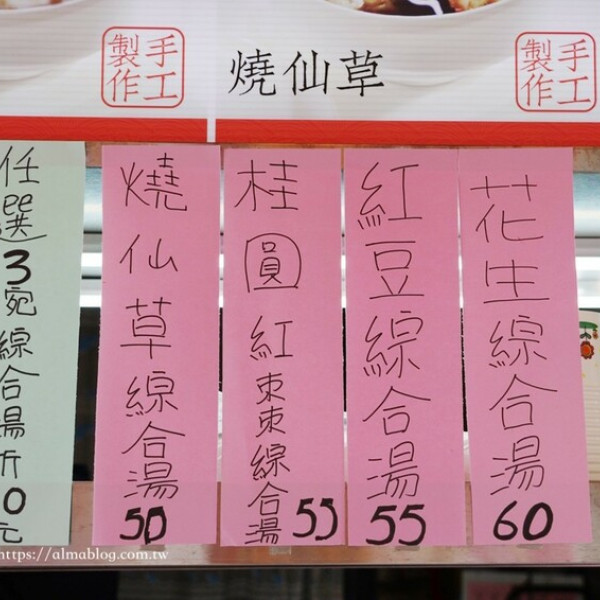 手工
製作
燒仙草
手工
製作
任選3碗綜合湯折0元
燒仙草綜合湯 50
桂圓紅棗綜合湯 55
紅豆綜合湯 55
花生綜合湯 60
https://almablog.com.tw